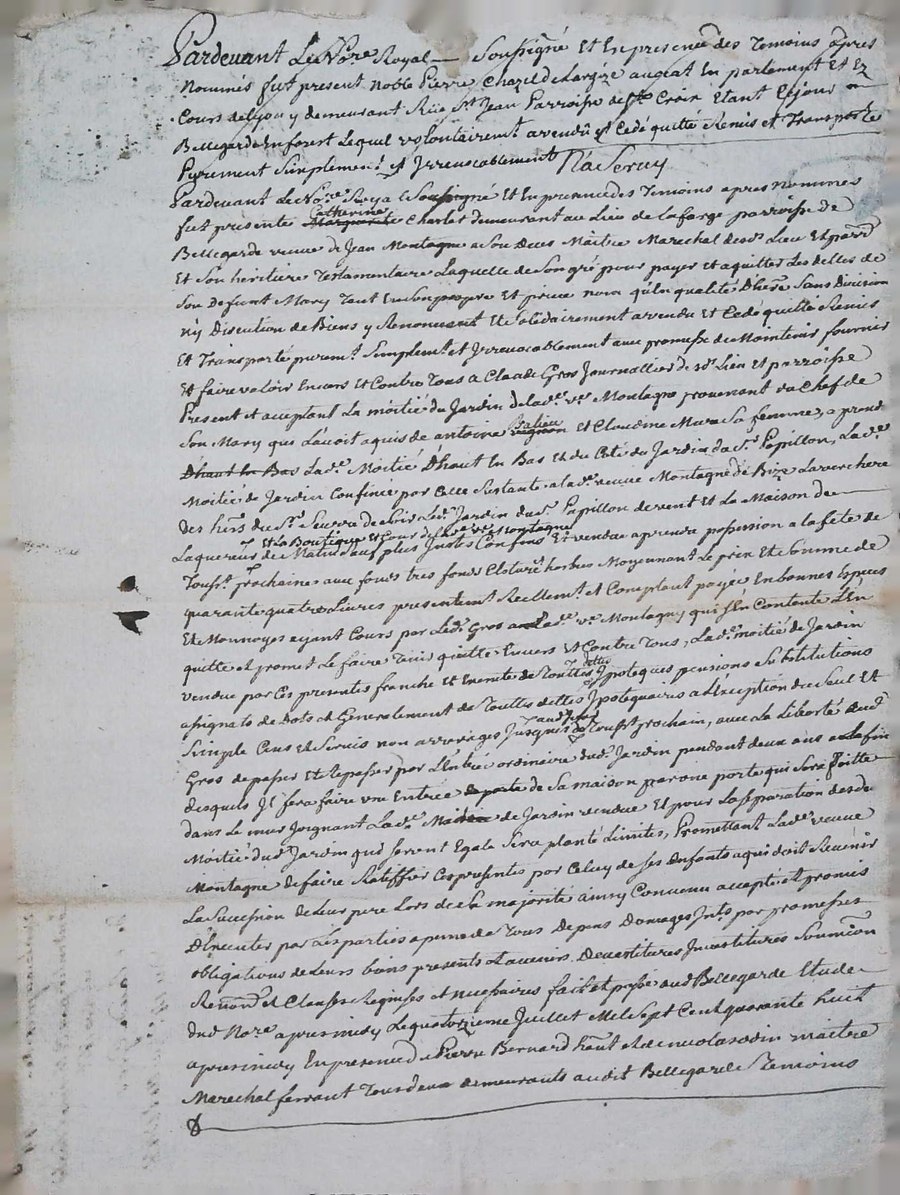 Pardevant Le No.re Royal Soussigné Et En presence des Temoins apres
Nommés fut present Noble Pierre Charel delargize auocat En parlement Et Ez
Cours de Lyon y demeurant Rüe St Jean Parroisse de Ste Croix Etant Ce jour a
Bellegarde En forest Lequel volontairement a vendû et Cedé quitté Remis et Transporté
Purement Simplement et Irreuocablement Na Seruy
Pardeuant Le No.re Royal Soussigné Et En presence des Temoins apres Nommés
fut presente Catherine Charles demeurant au Lieu de La farge parroisse de
Bellegarde veuue de Jean Montagne a Son deces Maitre Marechal dud. Lieu Et parr.
Et Son heritiere Testamentaire Laquelle de Son gré pour payer et aquitter Les dettes de
Son defunt Mary Tant En Son propre Et priué nom qu'En qualité D'here. Sans Diuision
ny Discution de Biens y Renonçant Et Solidairement a vendu et Cedé quitté Remis
Et Transporté purem.t Simplem.t et Irreuocablement auec promesse de Maintenir fournir
Et faire valoir Enuers Et Contre Tous a Claude Gros Journallier du d. Lieu et parroisse
Present et aceptant La moitié du Jardin de lad.e v.ue Montagne prouenant du Chef de
Son Mary qui L'auoit aquis de antoine et Claudine Mure Sa femme, a prendre
D'haut En Bas Lad.e Moitié D'haut En Bas Et du Coté du Jardin du S.r Papillon, Lad.e
Moitié de Jardin Confinée par Celle Restante a lad.e veuue Montagne de Bize La verchere
des hers du S.r de Soir Led. Jardin du S.r Papillon de vent Et La Maison de
Et La Boutique et Cour de lad.e v.ue Montagne
de Matin Sauf plus Justes Confins Et vendae a prendre possession a La fete de
Touss.t prochaine aux fonds tres fonds Moyennant Le prix Et Somme de
quarante quatre Liures presentem.t Reellem.t et Comptant payée En bonnes Especes
Et Monnoyes ayant Cours par Led. Gros a Lad.e v.ue Montagne qui S'En Contente L'En
quitte et promet Le faire Tenir quitte Enuers Et Contre Tous, Lad.e moitié de Jardin
vendue par Ces presentes franche Et Exemte de Touttes dettes Ipoteques pensions Substitutions
asignats de Dots et Generalement de Touttes dettes Ipotequaires a L'exception du Seul Et
Simple Cens et Seruis non arrerages Jusques aud. jour de Touss.t prochain, auec La Liberté aud.
Gros de passer Et Repasser par L'Entrée ordinaire dud. Jardin pendant deux ans a La fin
desquels Il fera faire une Entrée de Sa maison par une porte qui Sera faitte
dans Le mur Joignant Lad.e Moitié de Jardin vendue Et pour La Separation desd.
Moitié dud. Jardin qui Seront Egale Sera planté Limites, Promettant Lad.e veuue
Montagne de faire Ratiffier Ces presentes par Celuy de Ses Enfants a qui doit Reuenir
La Succession de Leur pere Lors de Sa majorité ainsy Conuenu accepté et promis
D'Executer par Les parties a peine de Tous Depens Domages Jnt.s par promesses
obligations de Leurs biens presents Et auenirs Deuestitures Inuestitures Soumission
Renon.on et Clauses Requises et necessaires fait et passé aud. Bellegarde Etude
dud. No.re apres midy Le quatorzieme Juillet Mil Sept Cent quarante huit
apres midy En presence de Pierre Bernard et de nicolas odin maitre
Marechal ferrant Tous deux demeurants audit Bellegarde Temoins